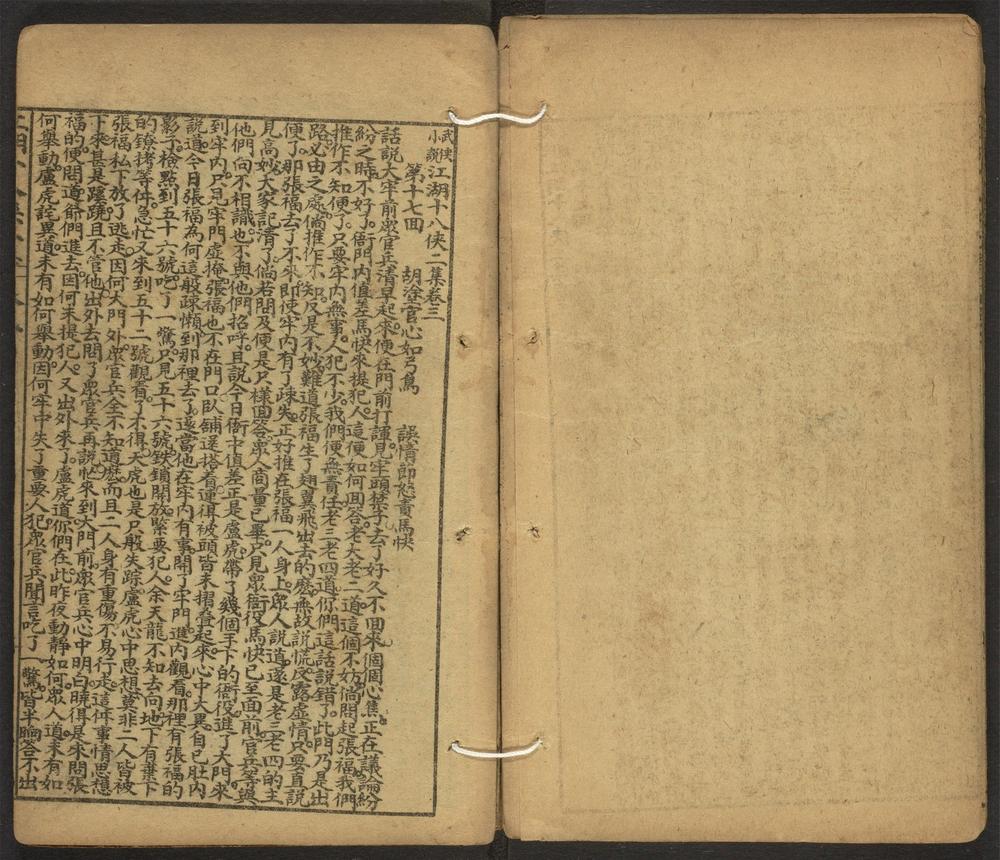 武俠小說江湖十八俠二集卷三
第十七回　胡塗官心如弓鳥　誤情節怒責馬快
話說大牢前眾官兵清早起來便在門前打諢見牢頭禁子去了好久不回來個個心焦。正在議論紛
紛之時不好了。衙門內值差馬快來提犯人。這便如何回答老大老二道這個不妨倘問起張福我們
推作不知便了。只要牢內無事。人犯不少。我們便無責任老三老四道你們這話說錯了。此門乃是出
路必由之處。倘推作不知。反是不妙。難道張福生了翅翼飛出去的麽。無故說慌。反露虛情。只要直說
便了。那張福去了不來。即使牢內有了疎失。正好推在張福一人身上。眾人說道。還是老三老四的主
見高妙。大家記清了。倘若問及便是只樣回答。眾人商量已畢。只見眾衙役馬快已至面前。官兵等與
他們向不相識。也不與他們招呼。且說今日衙中值差正是盧虎。帶了幾個手下的衙役。進了大門。來
到牢內。只見牢門虛掩。張福也不在門口。臥鋪邋塔着。連得被頭皆未摺叠起來。心中大異。自己肚內
說道。今日張福為何這般疎懶。到那裡去了。遂當他在牢內有事。開了牢門。進內觀看。那裡有張福的
影子。檢點到五十六號。吃了一驚。只見五十六號鉄鎖開放。緊要犯人余天龍不知去向。地下有棄下
的鐐拷等件。急忙又來到五十二號觀看。了不得。天虎也是只般失踪。盧虎心中思想。莫非二人皆被
張福私下放了逃走。因何大門外眾官兵全不知道麽。而且二人身有重傷。不易行走。這件事情思想
下來。甚是蹊蹺。且不管他。出外去問了眾官兵再說。忙來到大門前。眾官兵心中明白。曉得是來問張
福的。便問道爺們進去。因何未提犯人。又出外來了。盧虎道你們在此昨夜動靜如何。眾人道未有如
何舉動。盧虎詫異道。未有如何舉動。因何牢中失了重要人犯。眾官兵聞言吃了一驚。皆半晌答不出